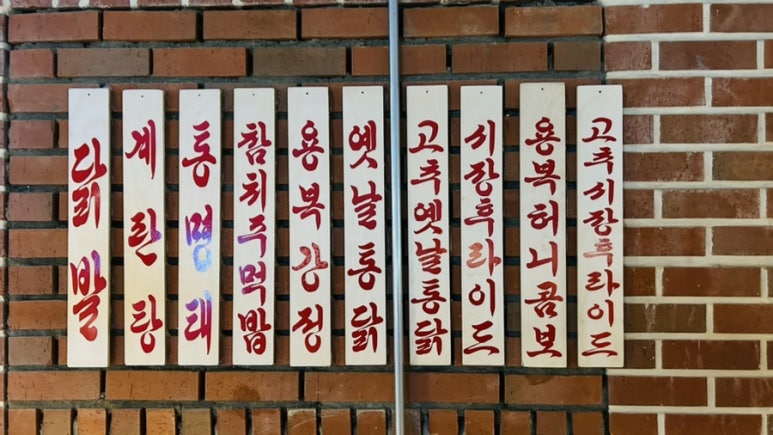 닭발
계란탕
통명태
참치주먹밥
용복강정
옛날통닭
고추옛날통닭
시장후라이드
용복허니콤보
고추시장후라이드